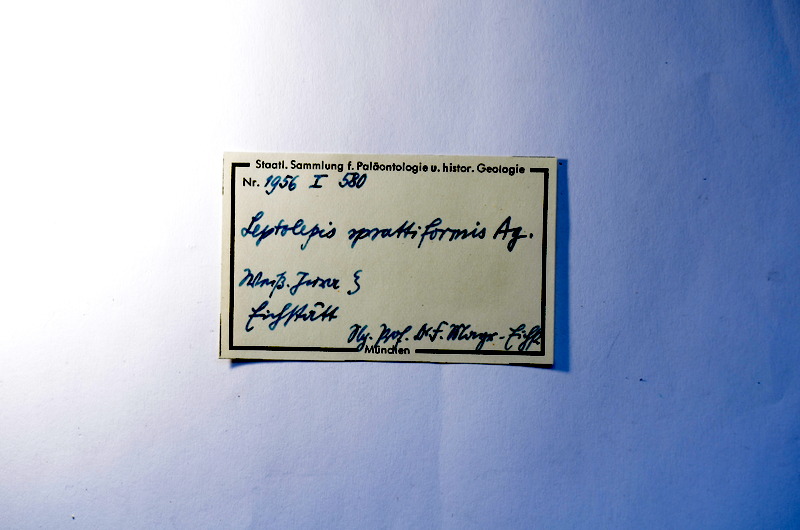 Staatl. Sammlung f. Paläontologie u. histor. Geologie
Nr. 1956 I 580
Leptolepis sprattiformis Ag.
Weiß. Jura ξ
Eichstätt
Slg. Prof. Dr. F. Mayr - Eichst.
München